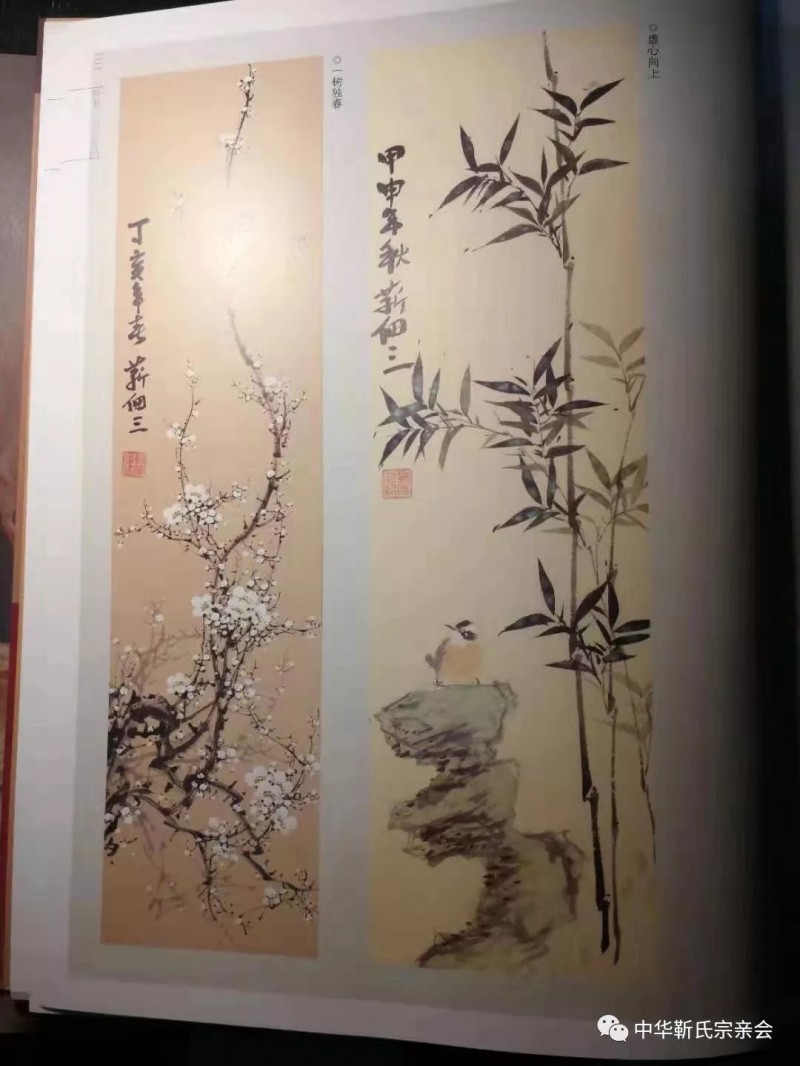 ◎虚心向上
甲申年秋 靳佃三
◎一树独春
丁亥年春 靳佃三
中华靳氏宗亲会